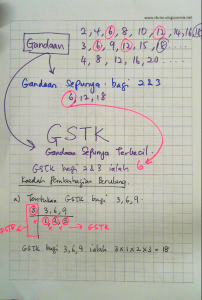 2, 4, 6, 8, 10, 12, 14, 16, 18
Gandaan
3, 6, 9, 12, 15, 18 .....
4, 8, 12, 16, 20 .....
Gandaan Sepunya bagi 2 & 3
6, 12, 18
GSTK
Gandaan Sepunya Terkecil.
GSTK bagi 2 & 3 ialah 6
Kaedah Pembahagian Berulang.
a) Tentukan GSTK bagi 3, 6, 9.
3 3, 6, 9
1, 2, 3
GSTK
GSTK bagi 3, 6, 9 ialah 3 x 1 x 2 x 3 = 18